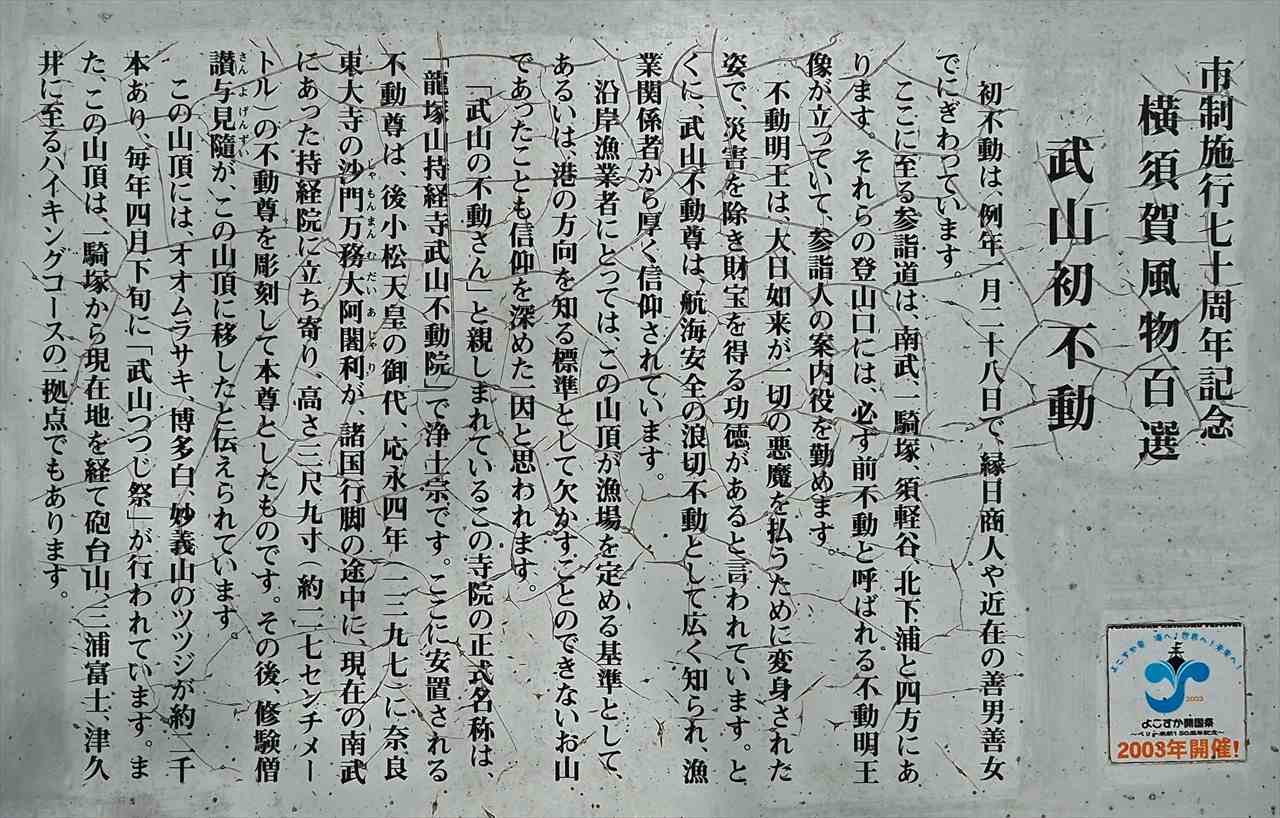 市制施行七十周年記念
横須賀風物百選
武山初不動
初不動は、例年一月二十八日で、縁日商人や近在の善男善女
でにぎわっています。
ここに至る参詣道は、南武、一騎塚、須軽谷、北下浦と四方にあ
ります。それらの登山口には、必ず前不動と呼ばれる不動明王
像が立っていて、参詣人の案内役を勤めます。
不動明王は、大日如来が一切の悪魔を払うために変身された
姿で、災害を除き財宝を得る功徳があると言われています。と
くに、武山不動尊は、航海安全の浪切不動として広く知られ、漁
業関係者から厚く信仰されています。
沿岸漁業者にとっては、この山頂が漁場を定める基準として、
あるいは、港の方向を知る標準として欠かすことのできないお山
であったことも信仰を深めた一因と思われます。
「武山の不動さん」と親しまれているこの寺院の正式名称は、
「龍塚山持経寺武山不動院」で浄土宗です。ここに安置される
不動尊は、後小松天皇の御代、応永四年(一三九七)に奈良
東大寺の沙門万務大阿闍利が、諸国行脚の途中に、現在の南武
しゃもんまんむだいあじゃり
にあった持経院に立ち寄り、高さ三尺九寸(約一二七センチメー
トル)の不動尊を彫刻して本尊としたものです。その後、修験僧
讃与見随が、この山頂に移したと伝えられています。
さんよげんずい
この山頂には、オオムラサキ、博多白、妙義山のツツジが約二千
本あり、毎年四月下旬に「武山つつじ祭」が行われています。ま
た、この山頂は、一騎塚から現在地を経て砲台山、三浦富士、津久
井に至るハイキングコースの一拠点でもあります。
よこすか発 海へ!世界へ!未来へ!
2003
よこすか開国祭
～ペリー来航150周年記念～
2003年開催!